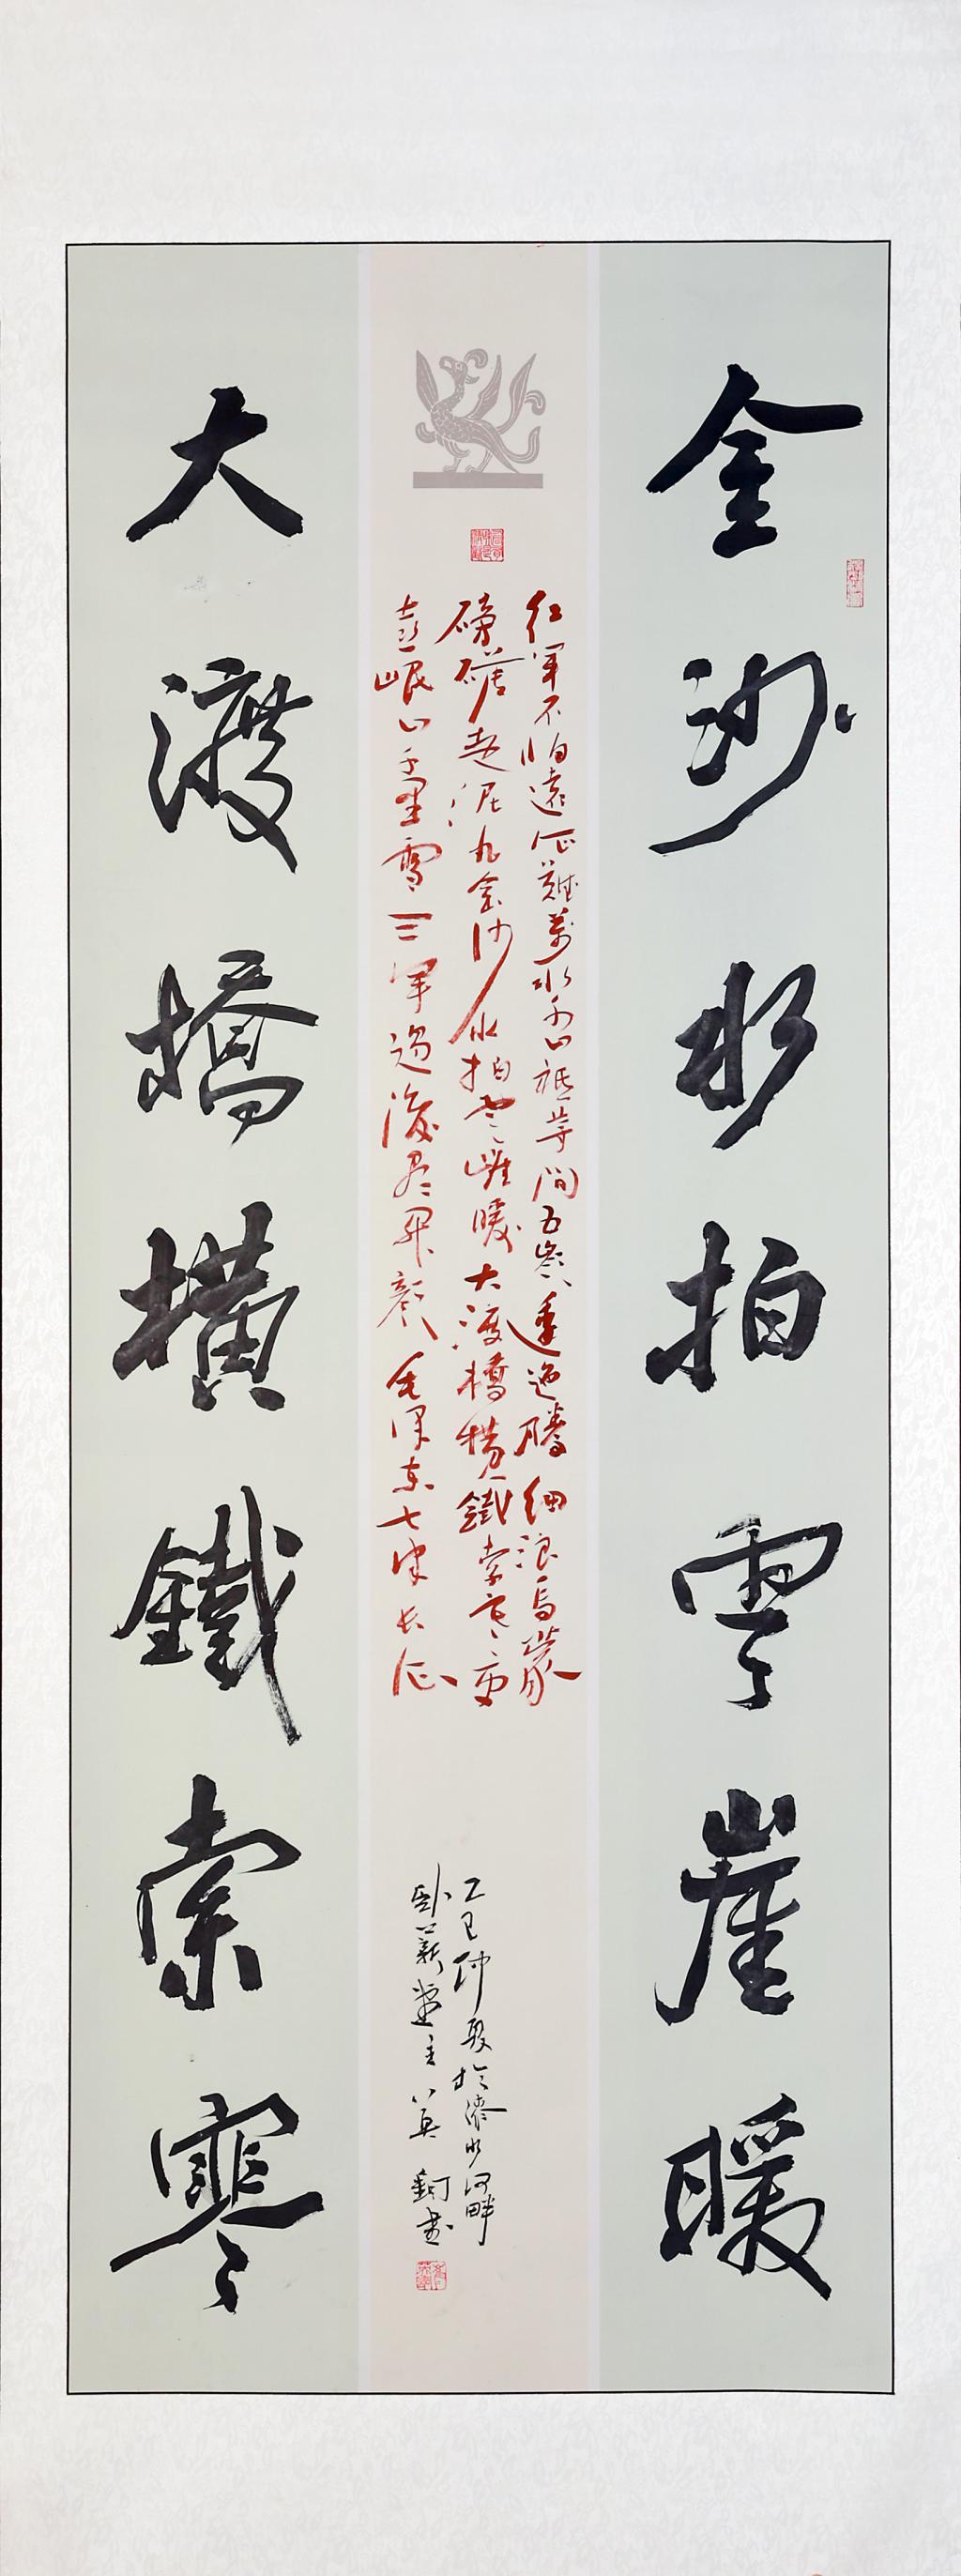 金沙水拍雲崖暖
紅軍不怕遠征難萬水千山祗等間五嶺逶迤騰細浪烏蒙
磅礴走泥丸金沙水拍雲崖暖大渡橋橫鐵索寒更
喜岷山千里雪三軍過後盡開顏毛澤東七律長征
乙巳仲夏於濟水河畔
臥薪堂主書
大渡橋橫鐵索寒